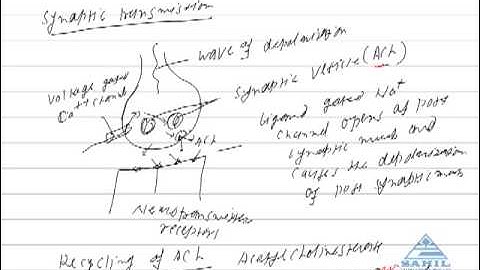 Synaptic transmission
wave of depolarization
Synaptic vesicle (ACh)
Voltage gated
Ca++ channel
ACh
ligand gated Na+
channel opens at post
synaptic memb and
causes the depolarization
of post synaptic memb
Neurotransmitter
receptors
Recycling of ACh
Acetylcholinesterase
SAHIL